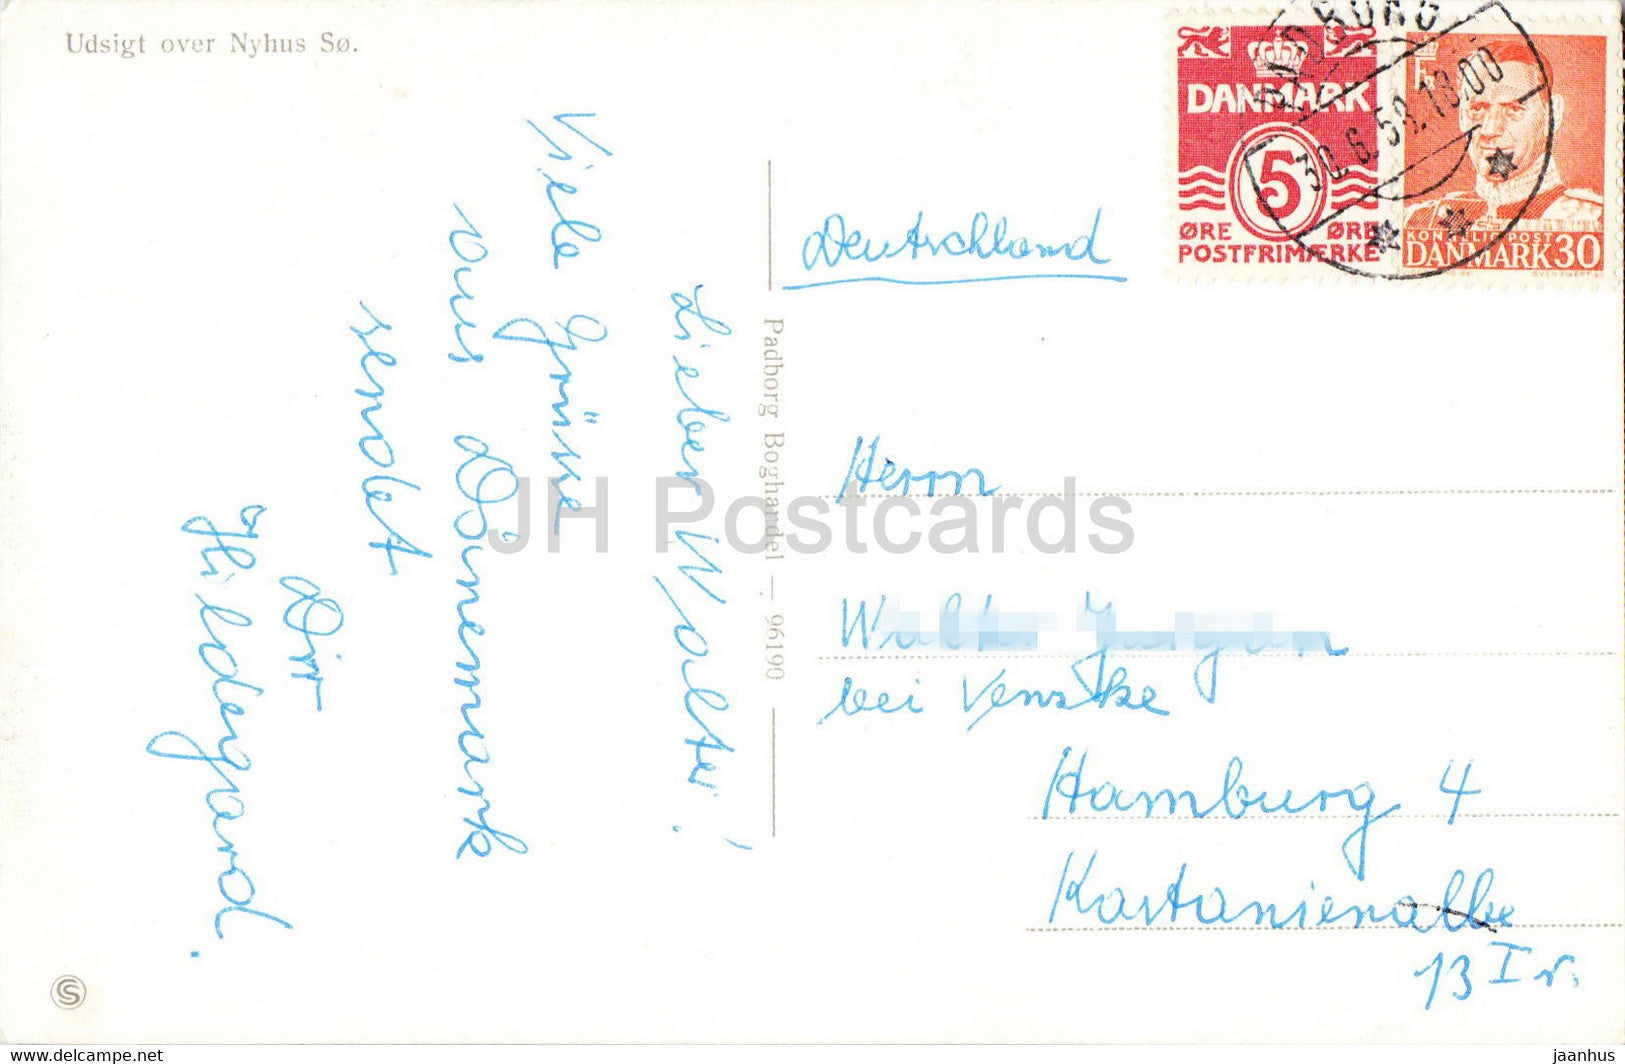 Udsigt over Nyhus Sø.
PADBORG
30.6.58.18.00
DANMARK
5
ØRE ØRE
POSTFRIMÆRKE
KONGELIG POST
DANMARK 30
Deutschland
Lieber Walter!
Viele Grüsse
aus Dänemark
sendet
Dir
Hildegard.
Padborg Boghandel — 96190
Herrn
bei Venzke
Hamburg 4
Kastanienallee
13 I r.
JH Postcards
www.delcampe.net
jaanhus